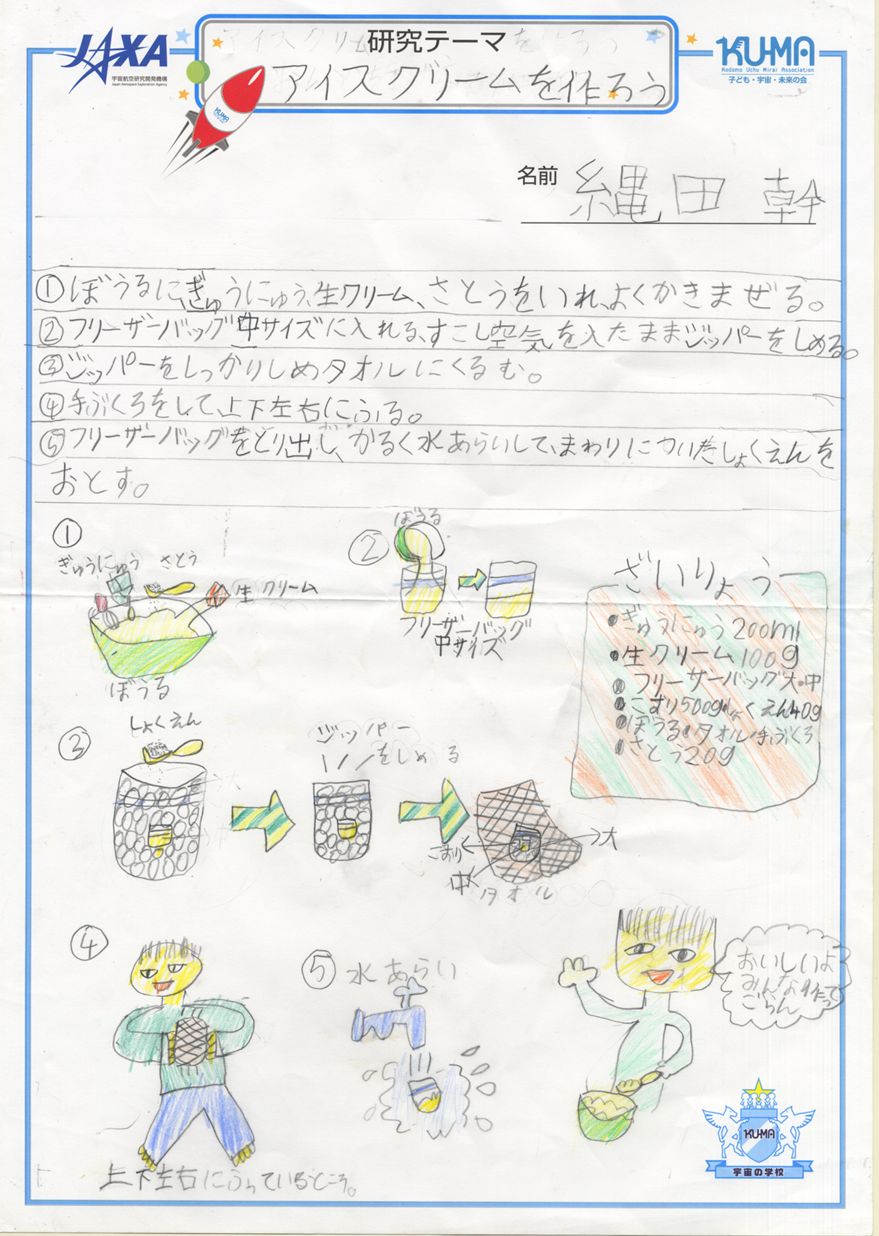 JAXA
宇宙航空研究開発機構
Japan Aerospace Exploration Agency
研究テーマ
アイスクリームを作ろう
KU-MA
Kodomo Uchu Mirai Association
子ども・宇宙・未来の会
KUMA
名前 縄田 幹
①ぼうるに、ぎゅうにゅう、生クリーム、さとうをいれ、よくかきまぜる。
②フリーザーバッグ中サイズに入れる、すこし空気を入たままジッパーをしめる。
③ジッパーをしっかりしめタオルにくるむ。
④手ぶくろをして、上下左右にふる。
⑤フリーザーバッグをとり出し、かるく水あらいして、まわりについたしょくえんを
おとす。
①
ぎゅうにゅう さとう
生クリーム
ぼうる
②
ぼうる
フリーザーバッグ
中サイズ
ざいりょう
・ぎゅうにゅう200ml
・生クリーム100g
・フリーザーバッグ大・中
・こおり500g しょくえん40g
・ぼうる・タオル手ぶくろ
・さとう20g
③
しょくえん
ジッパー
をしめる
こおり
中
大
タオル
④
上下左右にふっているところ。
⑤ 水あらい
おいしいよ
みんな作って
ごらん
KUMA
宇宙の学校